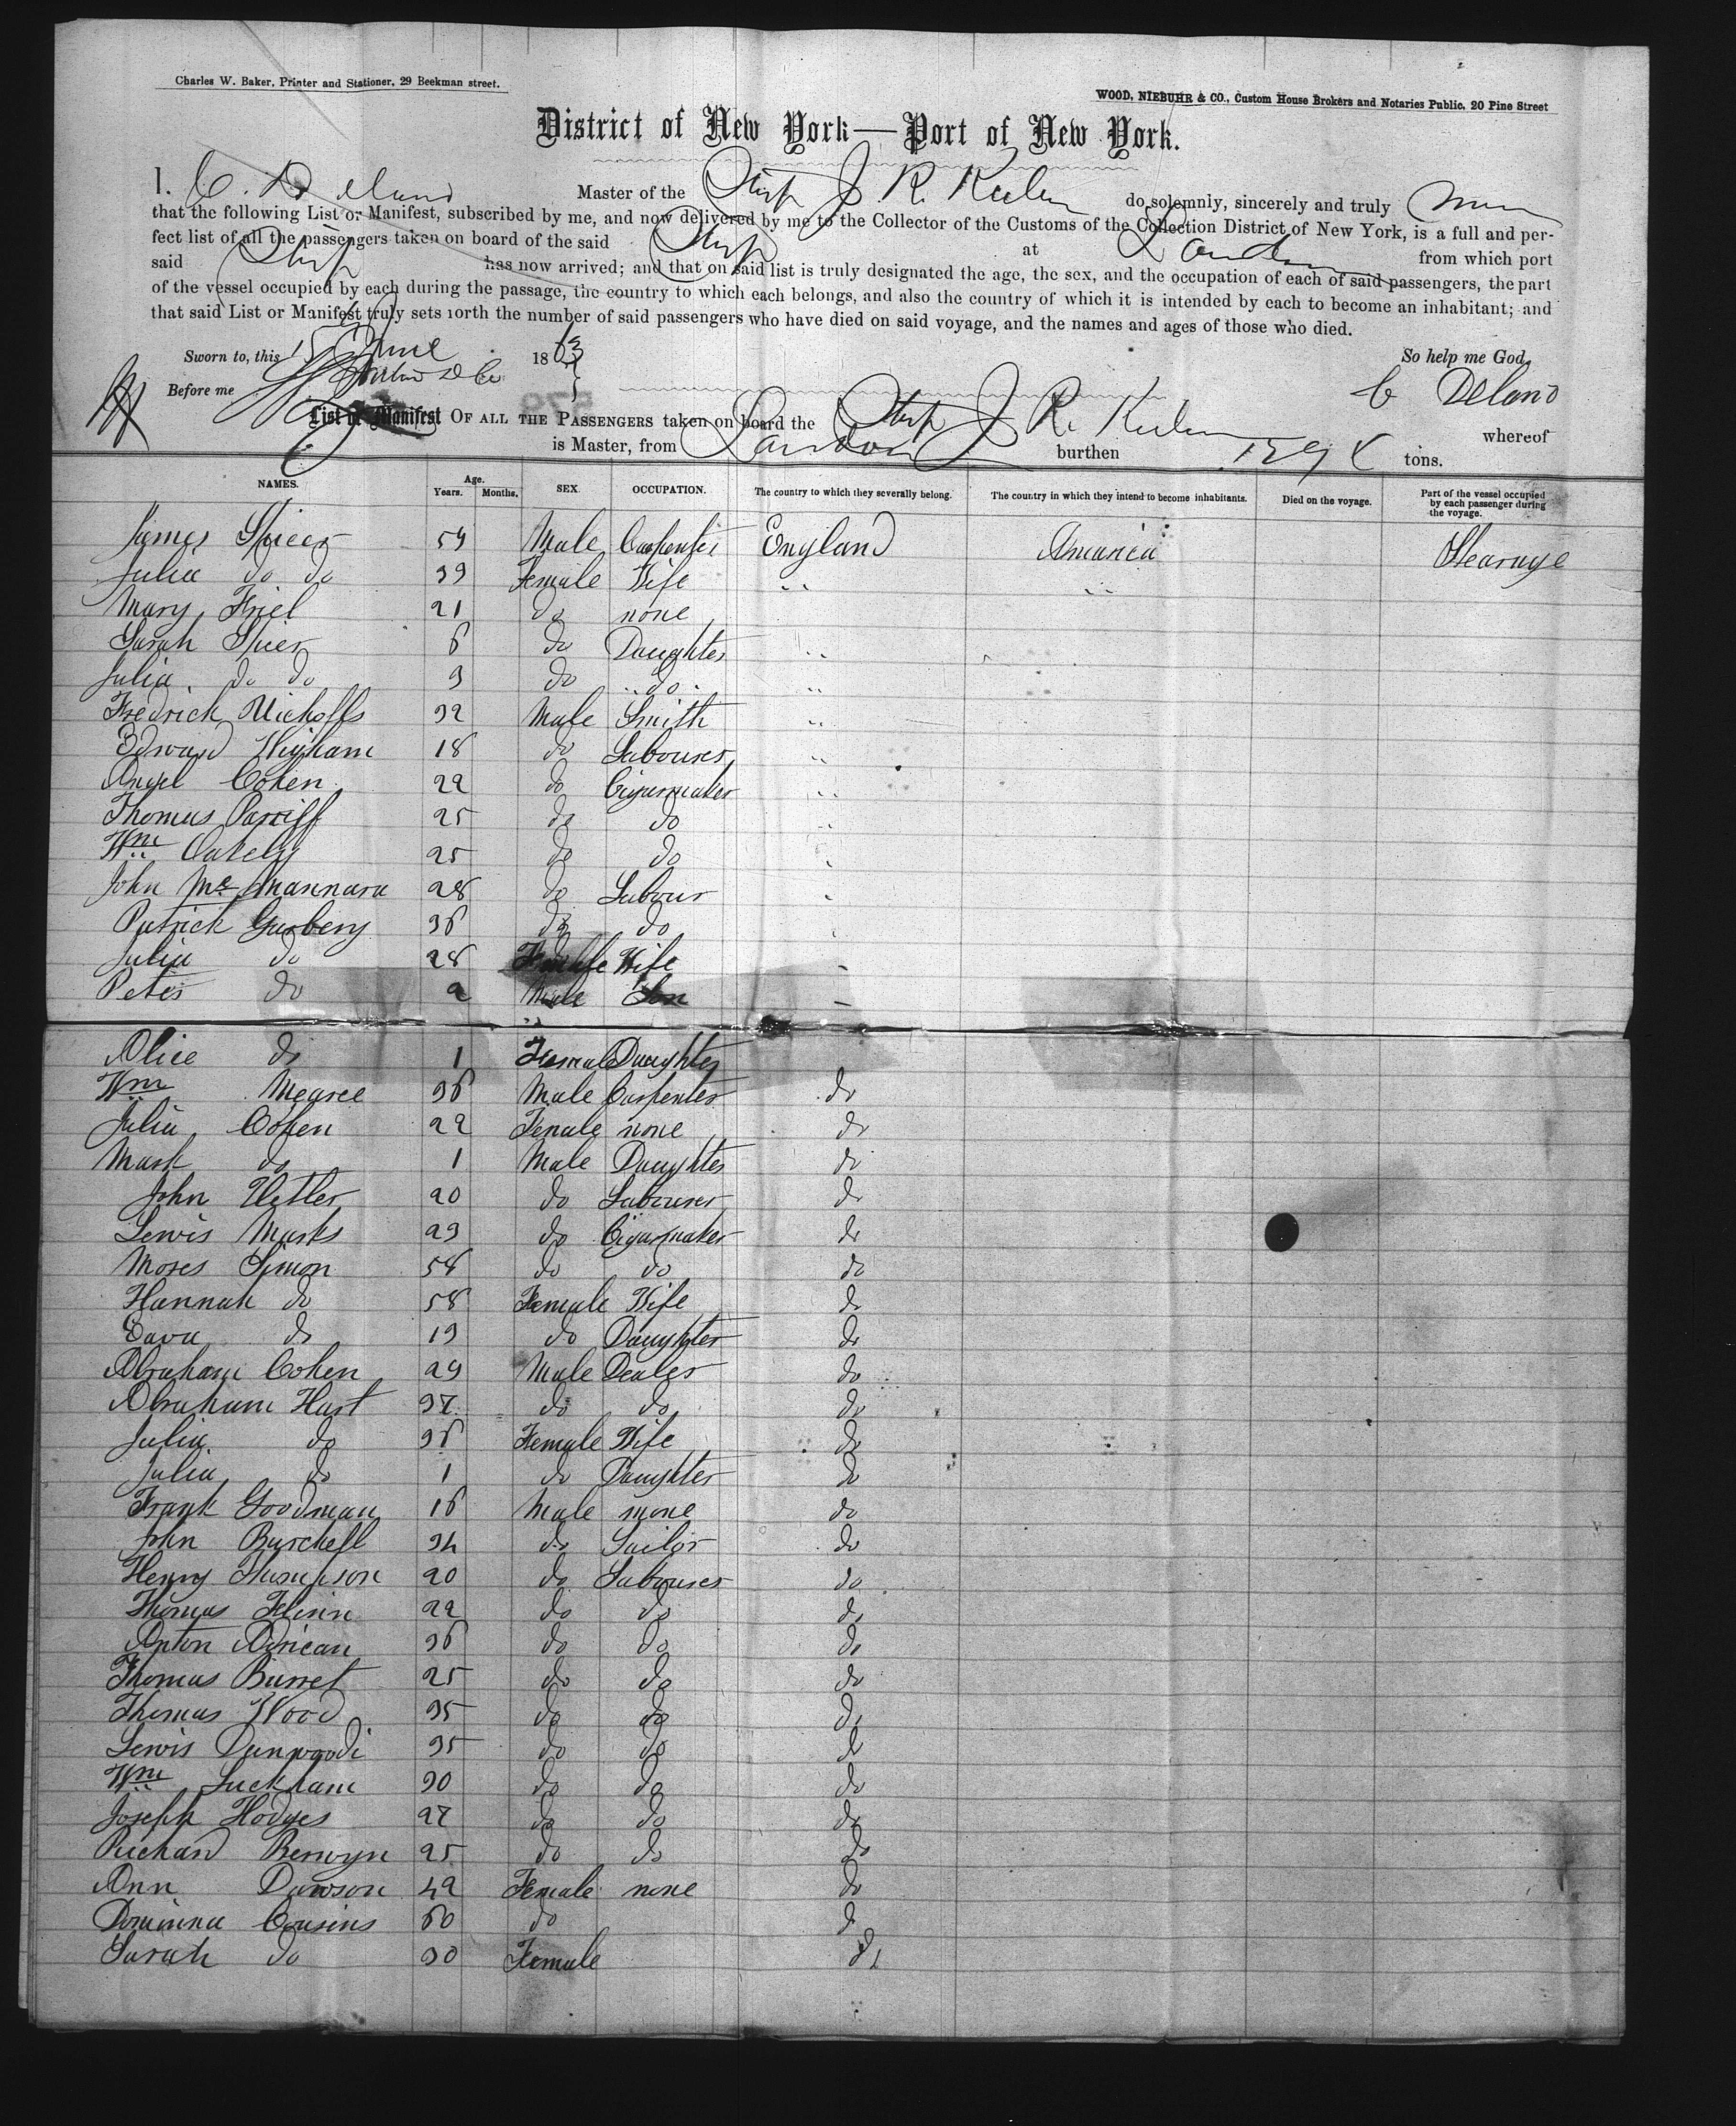 Charles W. Baker, Printer and Stationer, 29 Beekman street.
WOOD, NIEBUHR & CO., Custom House Brokers and Notaries Public, 20 Pine Street
District of New York—Port of New York.
I. C. Deland Master of the Ship J. R. Keeler do solemnly, sincerely and truly swear
that the following List or Manifest, subscribed by me, and now delivered by me to the Collector of the Customs of the Collection District of New York, is a full and per-
fect list of all the passengers taken on board of the said Ship at London from which port
said Ship has now arrived; and that on said list is truly designated the age, the sex, and the occupation of each of said passengers, the part
of the vessel occupied by each during the passage, the country to which each belongs, and also the country of which it is intended by each to become an inhabitant; and
that said List or Manifest truly sets forth the number of said passengers who have died on said voyage, and the names and ages of those who died.
Sworn to, this 15 June 1863 So help me God,
Before me C Deland
List or Manifest OF ALL THE PASSENGERS taken on board the Ship J. R. Keeler whereof
is Master, from London burthen tons.
NAMES. Age. Years. Months. SEX. OCCUPATION. The country to which they severally belong. The country in which they intend to become inhabitants. Died on the voyage. Part of the vessel occupied by each passenger during the voyage.
James Spicer 54 Male Carpenter England America Stearage
Julia do do 39 Female Wife " "
Mary Friel 21 do none
Sarah Spicer 6 do Daughter "
Julia do do 3 do do "
Fredrick Nicholls 32 Male Smith "
Edward Wigham 18 do Labourer "
Angel Cohen 22 do Cigarmaker "
Thomas 25 do do "
Wm Oately 25 do do "
John Mc Mannara 28 do Labour "
Patrick Garbery 36 do do "
Julia do 28 Female Wife "
Peter do 2 Male Son "
Alice do 1 Female Daughter
Wm Mearce 36 Male Carpenter do
Julia Cohen 22 Female none do
Mark do 1 Male Daughter do
John 20 do Labourer do
Lewis Marks 23 do Cigarmaker do
Moses Simon 58 do do do
Hannah do 58 Female Wife do
Eava do 19 do Daughter do
Abraham Cohen 29 Male Dealer do
Abraham Hart 37 do do do
Julia do 36 Female Wife do
Julia do 1 do Daughter do
Frank Goodman 16 Male none do
John Burchell 34 do Sailor do
Henry Thompson 20 do Labourer do
Thomas Flinn 22 do do do
Anton 36 do do do
Thomas Burret 25 do do do
Thomas Wood 35 do do do
Lewis Dunwoodi 35 do do do
Wm Luckham 30 do do do
Joseph Hodges 27 do do do
Richard Berwyn 25 do do do
Ann Dawson 42 Female none do
Cousins 60 do do
Sarah do 30 Female do